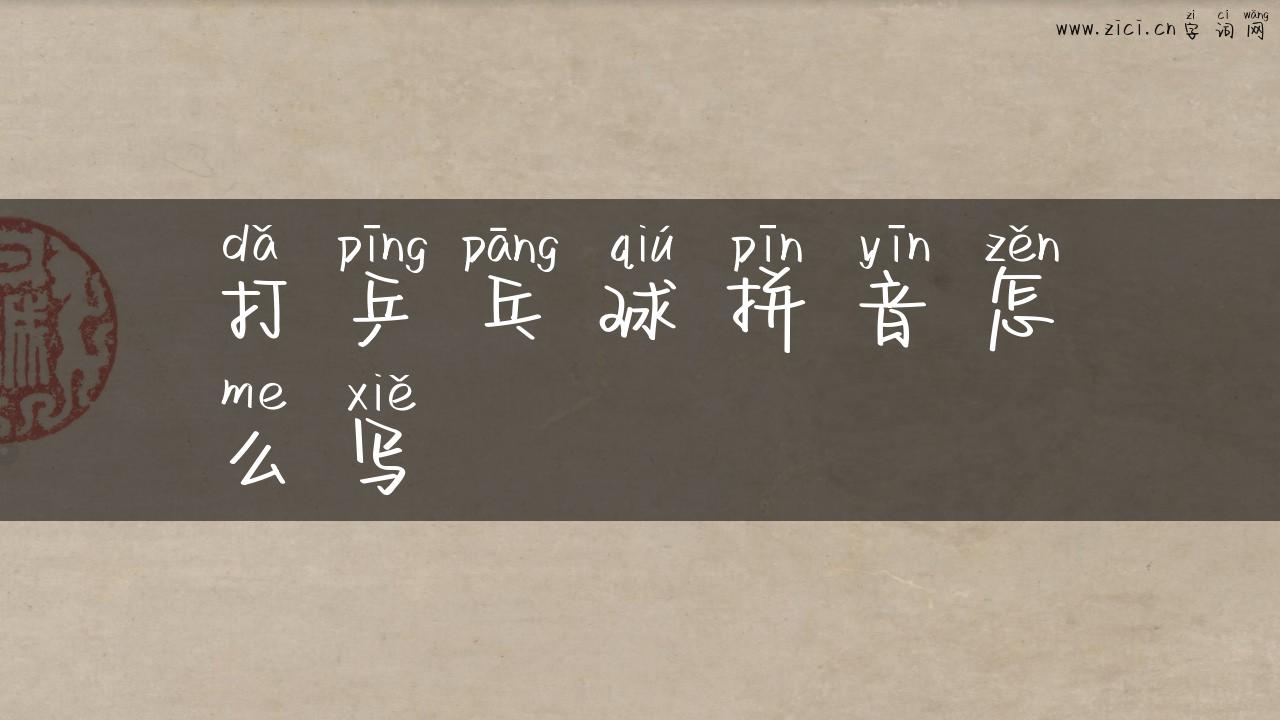 zì cí wǎng
www.zici.cn 字词网
dǎ pīng pāng qiú pīn yīn zěn
打乒乓球拼音怎
me xiě
么写